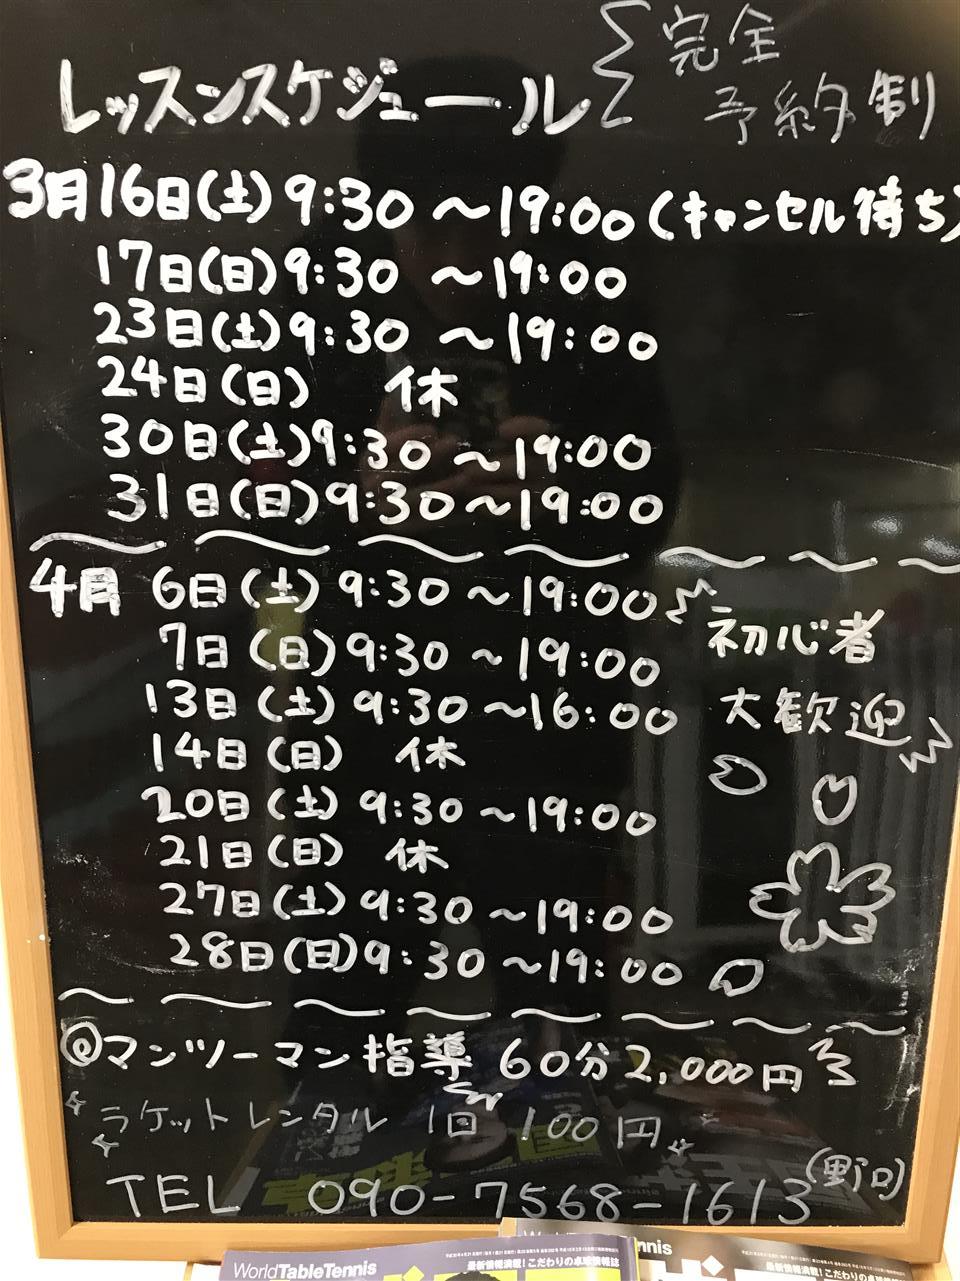 レッスンスケジュール
完全
予約制
3月16日(土)9:30〜19:00(キャンセル待ち)
17日(日)9:30〜19:00
23日(土)9:30〜19:00
24日(日) 休
30日(土)9:30〜19:00
31日(日)9:30〜19:00
4月 6日(土)9:30〜19:00
7日(日)9:30〜19:00
13日(土)9:30〜16:00
14日(日) 休
20日(土)9:30〜19:00
21日(日) 休
27日(土)9:30〜19:00
28日(日)9:30〜19:00
初心者
大歓迎
◎マンツーマン指導 60分2,000円
ラケットレンタル 1回 100円
TEL 090-7568-1613(野口)
World Table Tennis
最新情報満載!こだわりの卓球情報誌
World Table Tennis
最新情報満載!こだわりの卓球情報誌